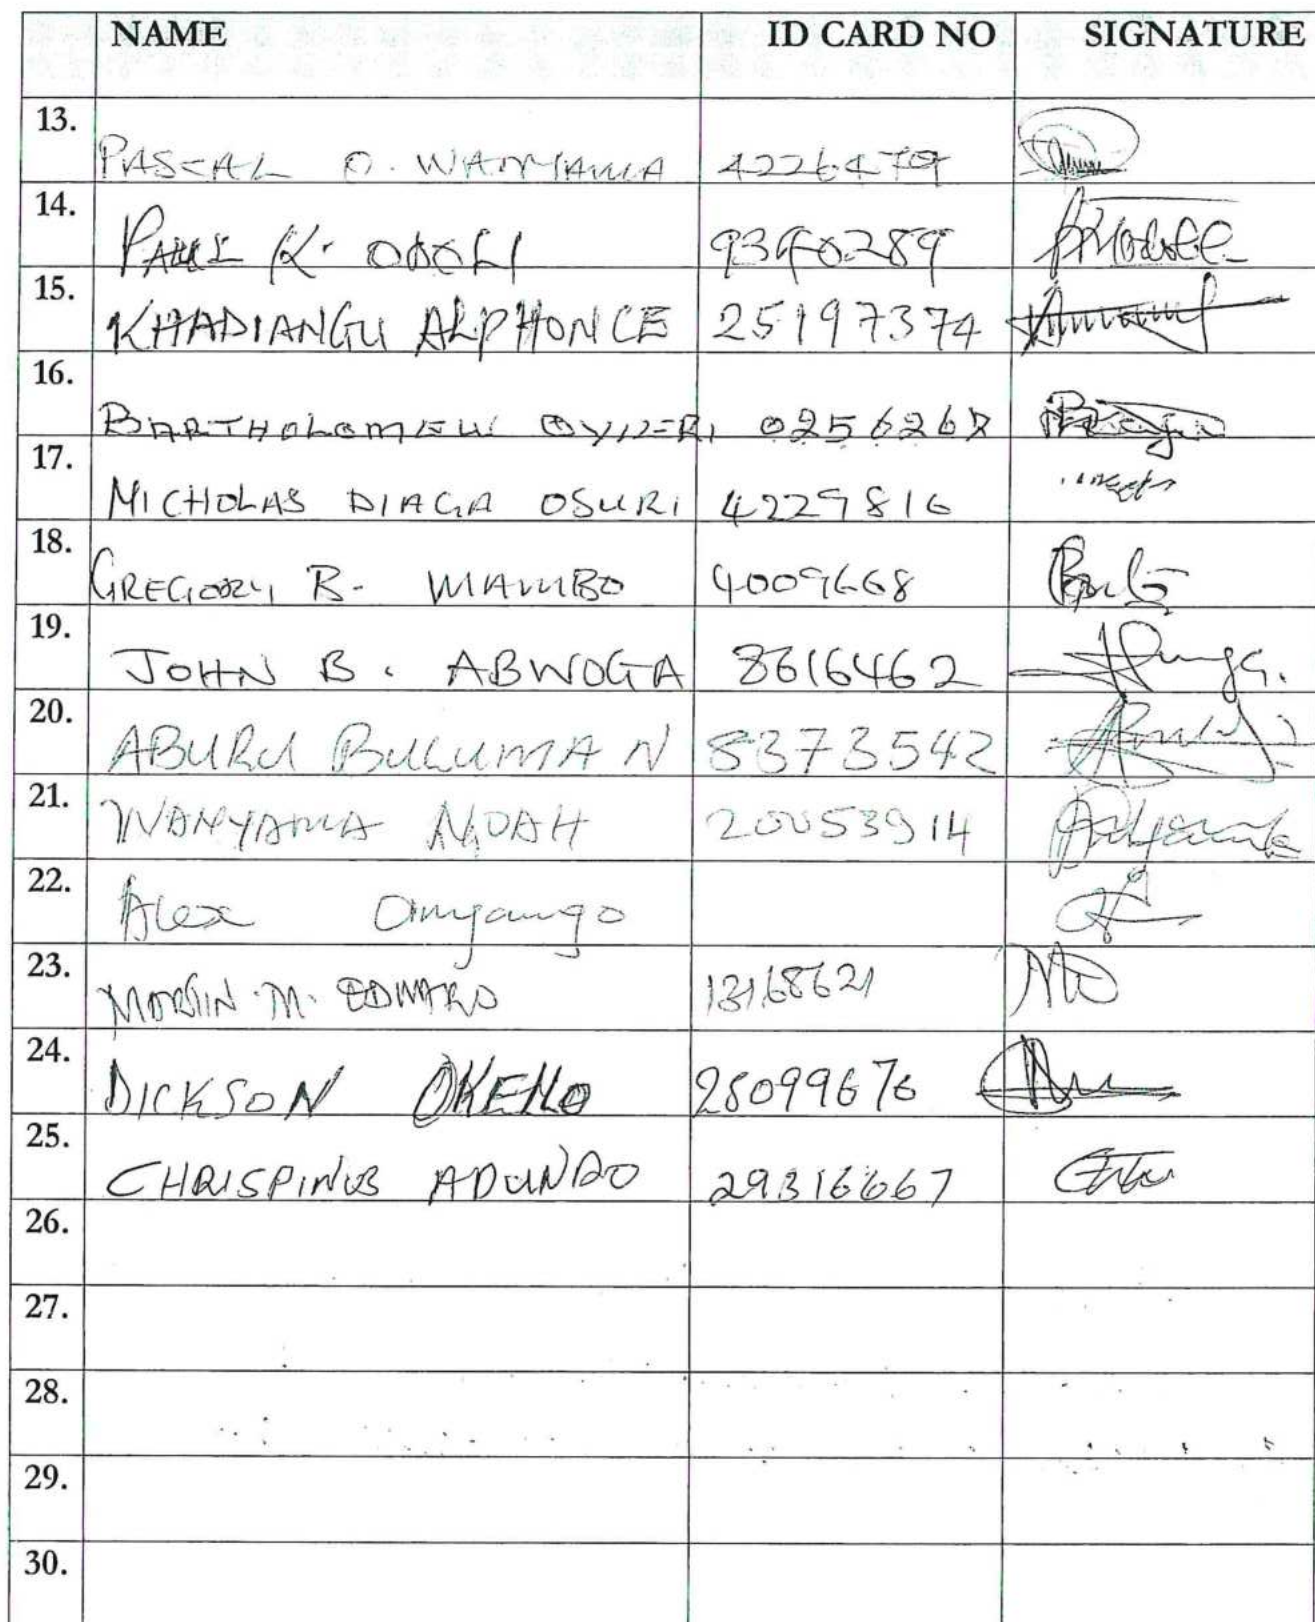 NAME ID CARD NO SIGNATURE
13. PASCAL O. WANYAMA 42264779
14. PAUL K. ODOLI 9340289
15. KHADIANGU ALPHONCE 25197374
16. BARTHOLOMEW 0256267
17. NICHOLAS DIAGA OSURI 4229816
18. GREGORY B. WAMBO 4009668
19. JOHN B. ABWOGA 8616462
20. ABURU BULUMA N 8373542
21. WANYAMA NOAH 20053914
22. Alex Onyango
23. MARTIN M. EDWARD 13168621
24. DICKSON OKELLO 25099676
25. CHRISPINUS ADUNDO 29316667
26.
27.
28.
29.
30.